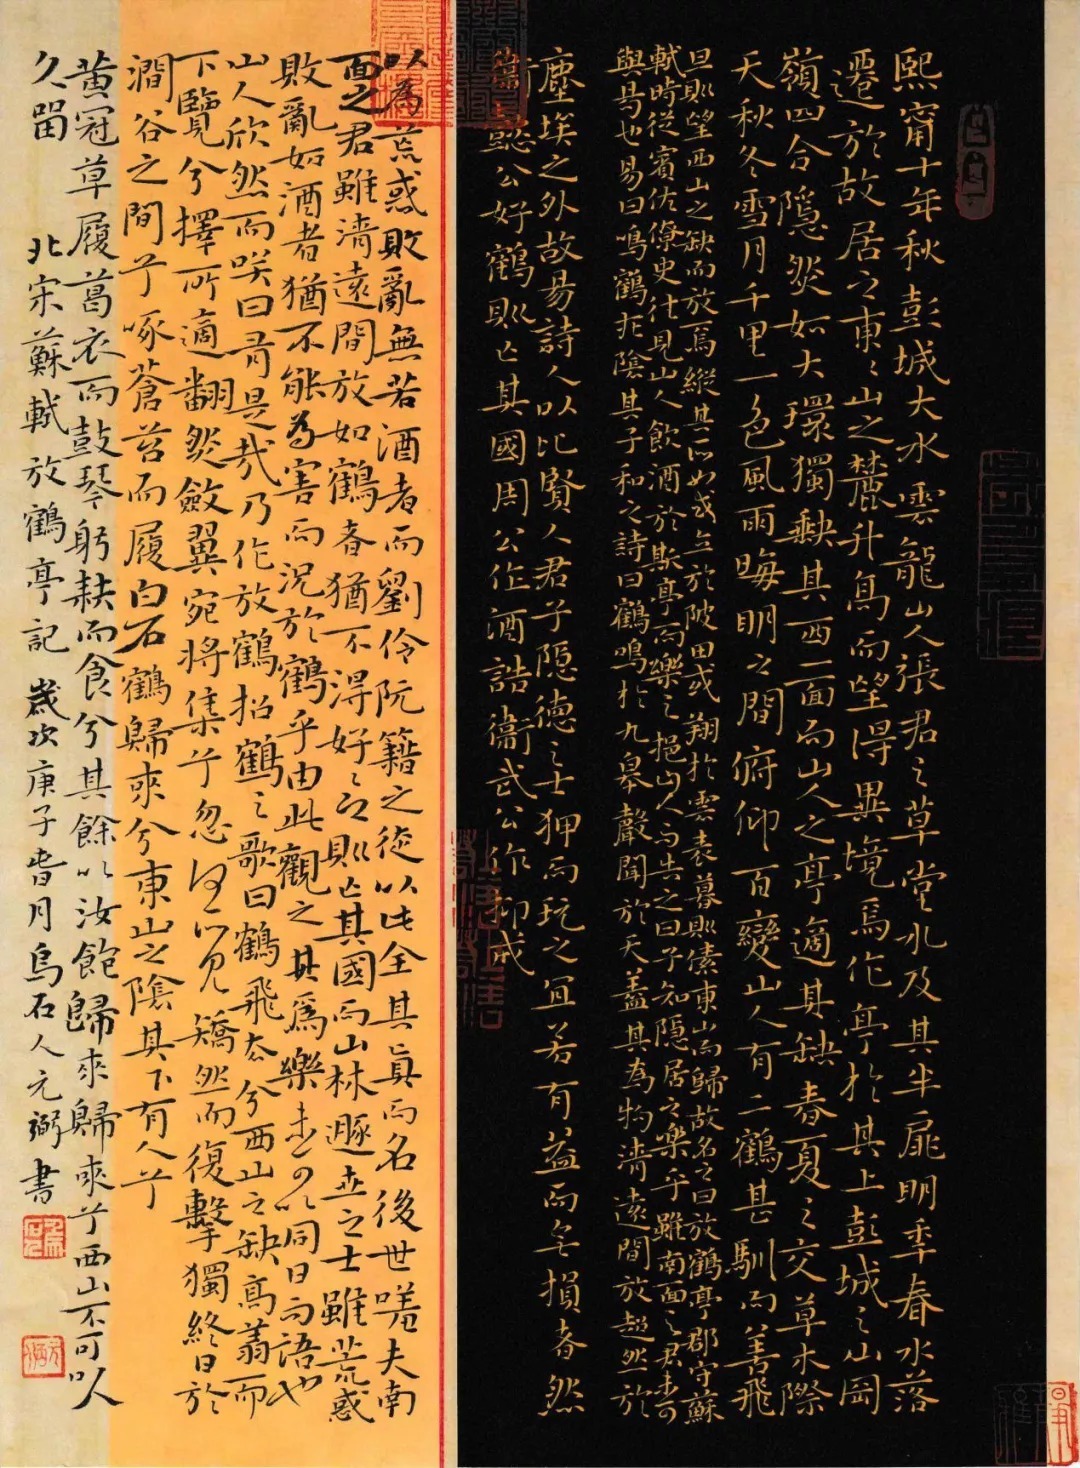 熙甯十年秋彭城大水雲龍山人張君之草堂水及其半扉明年春水落
遷於故居之東東山之麓升高而望得異境焉作亭於其上彭城之山岡
嶺四合隱然如大環獨缺其西一面而山人之亭適其缺春夏之交草木際
天秋冬雪月千里一色風雨晦明之間俯仰百變山人有二鶴甚馴而善飛
旦則望西山之缺而放焉縱其所如或立於陂田或翔於雲表暮則傃東山而歸故名之曰放鶴亭郡守蘇
軾時從賓佐僚吏往見山人飲酒於斯亭而樂之挹山人而告之曰子知隱居之樂乎雖南面之君未可
與易也易曰鳴鶴在陰其子和之詩曰鶴鳴於九皋聲聞於天蓋其為物清遠閒放超然於
塵埃之外故易詩人以比賢人君子隱德之士狎而玩之宜若有益而無損者然
衛懿公好鶴則亡其國周公作酒誥衛武公作抑戒
以為荒惑敗亂無若酒者而劉伶阮籍之徒以此全其真而名後世嗟夫南
面之君雖清遠閒放如鶴者猶不得好好之則亡其國而山林遯世之士雖荒惑
敗亂如酒者猶不能為害而況於鶴乎由此觀之其為樂未可以同日而語也
山人欣然而笑曰有是哉乃作放鶴招鶴之歌曰鶴飛去兮西山之缺高翥而
下覽兮擇所適翻然斂翼宛將集兮忽何所見矯然而復擊獨終日於
澗谷之間兮啄蒼苔而履白石鶴歸來兮東山之陰其下有人兮
黃冠草履葛衣而鼓琴躬耕而食兮其餘以汝飽歸來歸來兮西山不可以
久留 北宋蘇軾放鶴亭記 歲次庚子春月烏石人元弼書